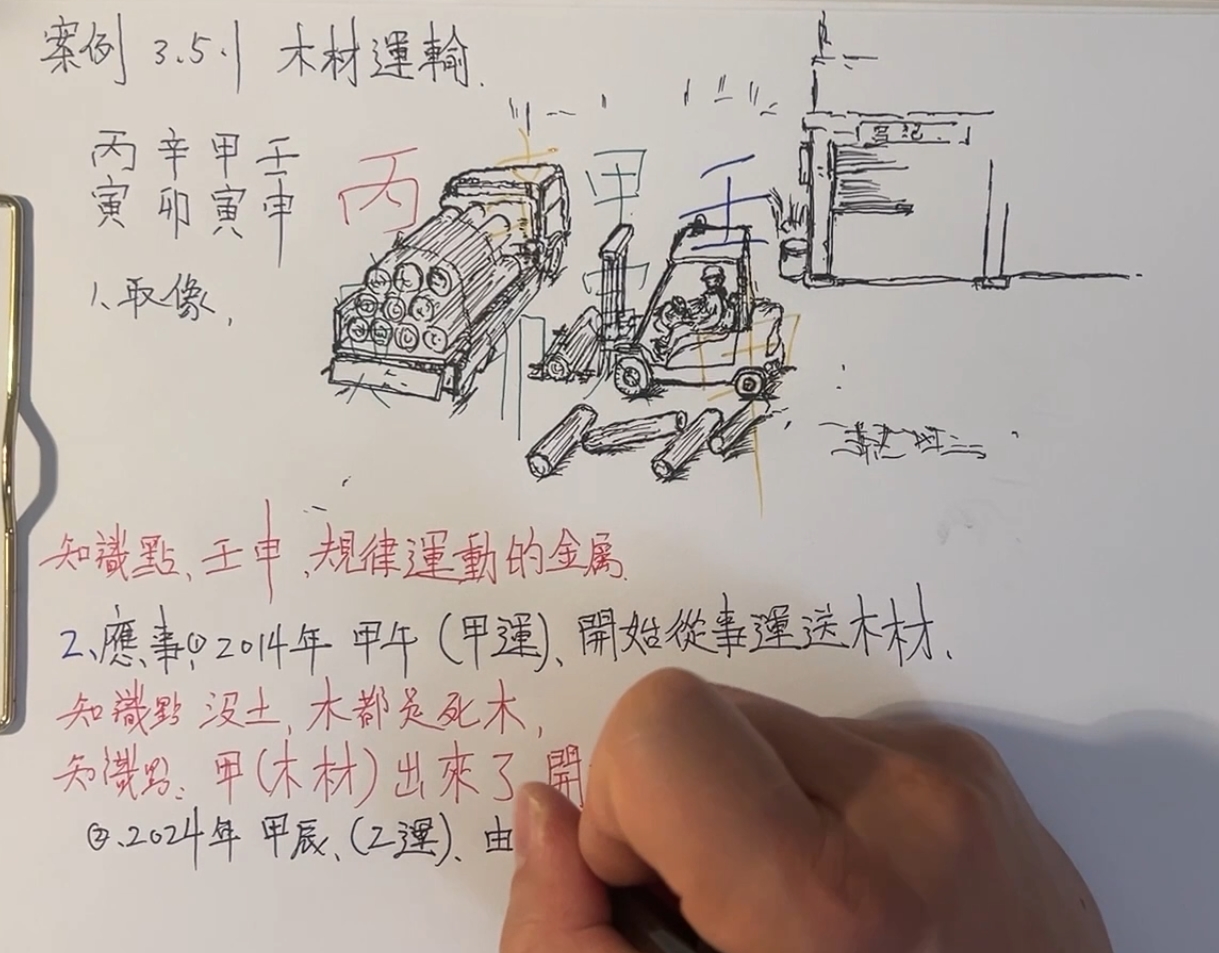 案例 3.5.1 木材運輸.
丙 辛 甲 壬
寅 卯 寅 申
1、取像,
丙 辛 甲 壬
寅 卯 寅 申
知識點、壬申、規律運動的金属
2、應事①2014年 甲午 (甲運)、開始從事運送木材.
知識點 没土, 木都是死木,
知識點: 甲(木材)出來了 開
②、2024年 甲辰、(乙運)、由